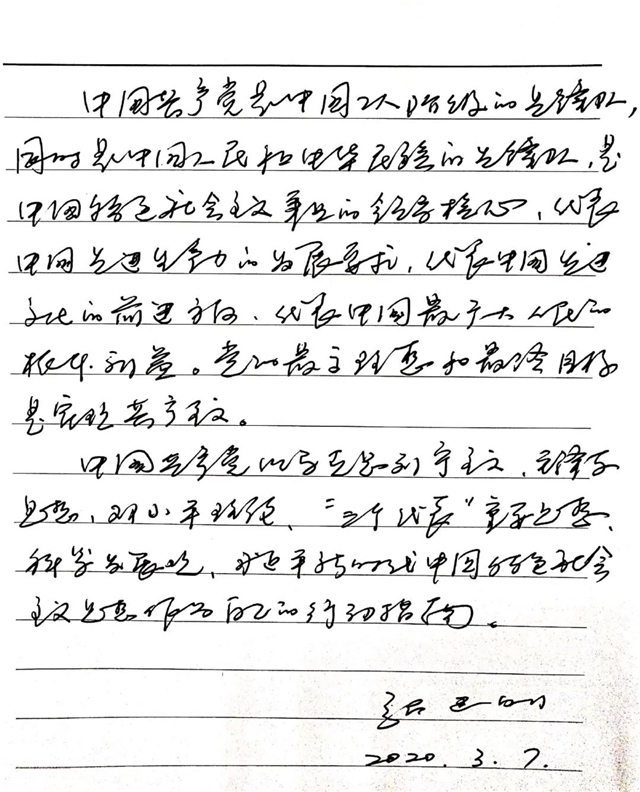 中国共产党是中国工人阶级的先锋队，
同时是中国人民和中华民族的先锋队，是
中国特色社会主义事业的领导核心，代表
中国先进生产力的发展要求，代表中国先进
文化的前进方向，代表中国最广大人民的
根本利益。党的最高理想和最终目标
是实现共产主义。
中国共产党以马克思列宁主义、毛泽东
思想、邓小平理论、“三个代表”重要思想、
科学发展观、习近平新时代中国特色社会
主义思想作为自己的行动指南。
2020.3.7.